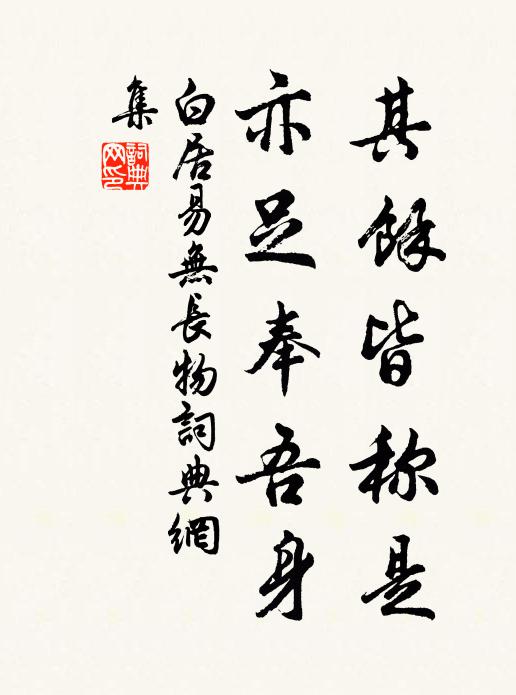 其餘皆称是
亦足奉吾身
白居易無長物詞典網
集
詞典
网印